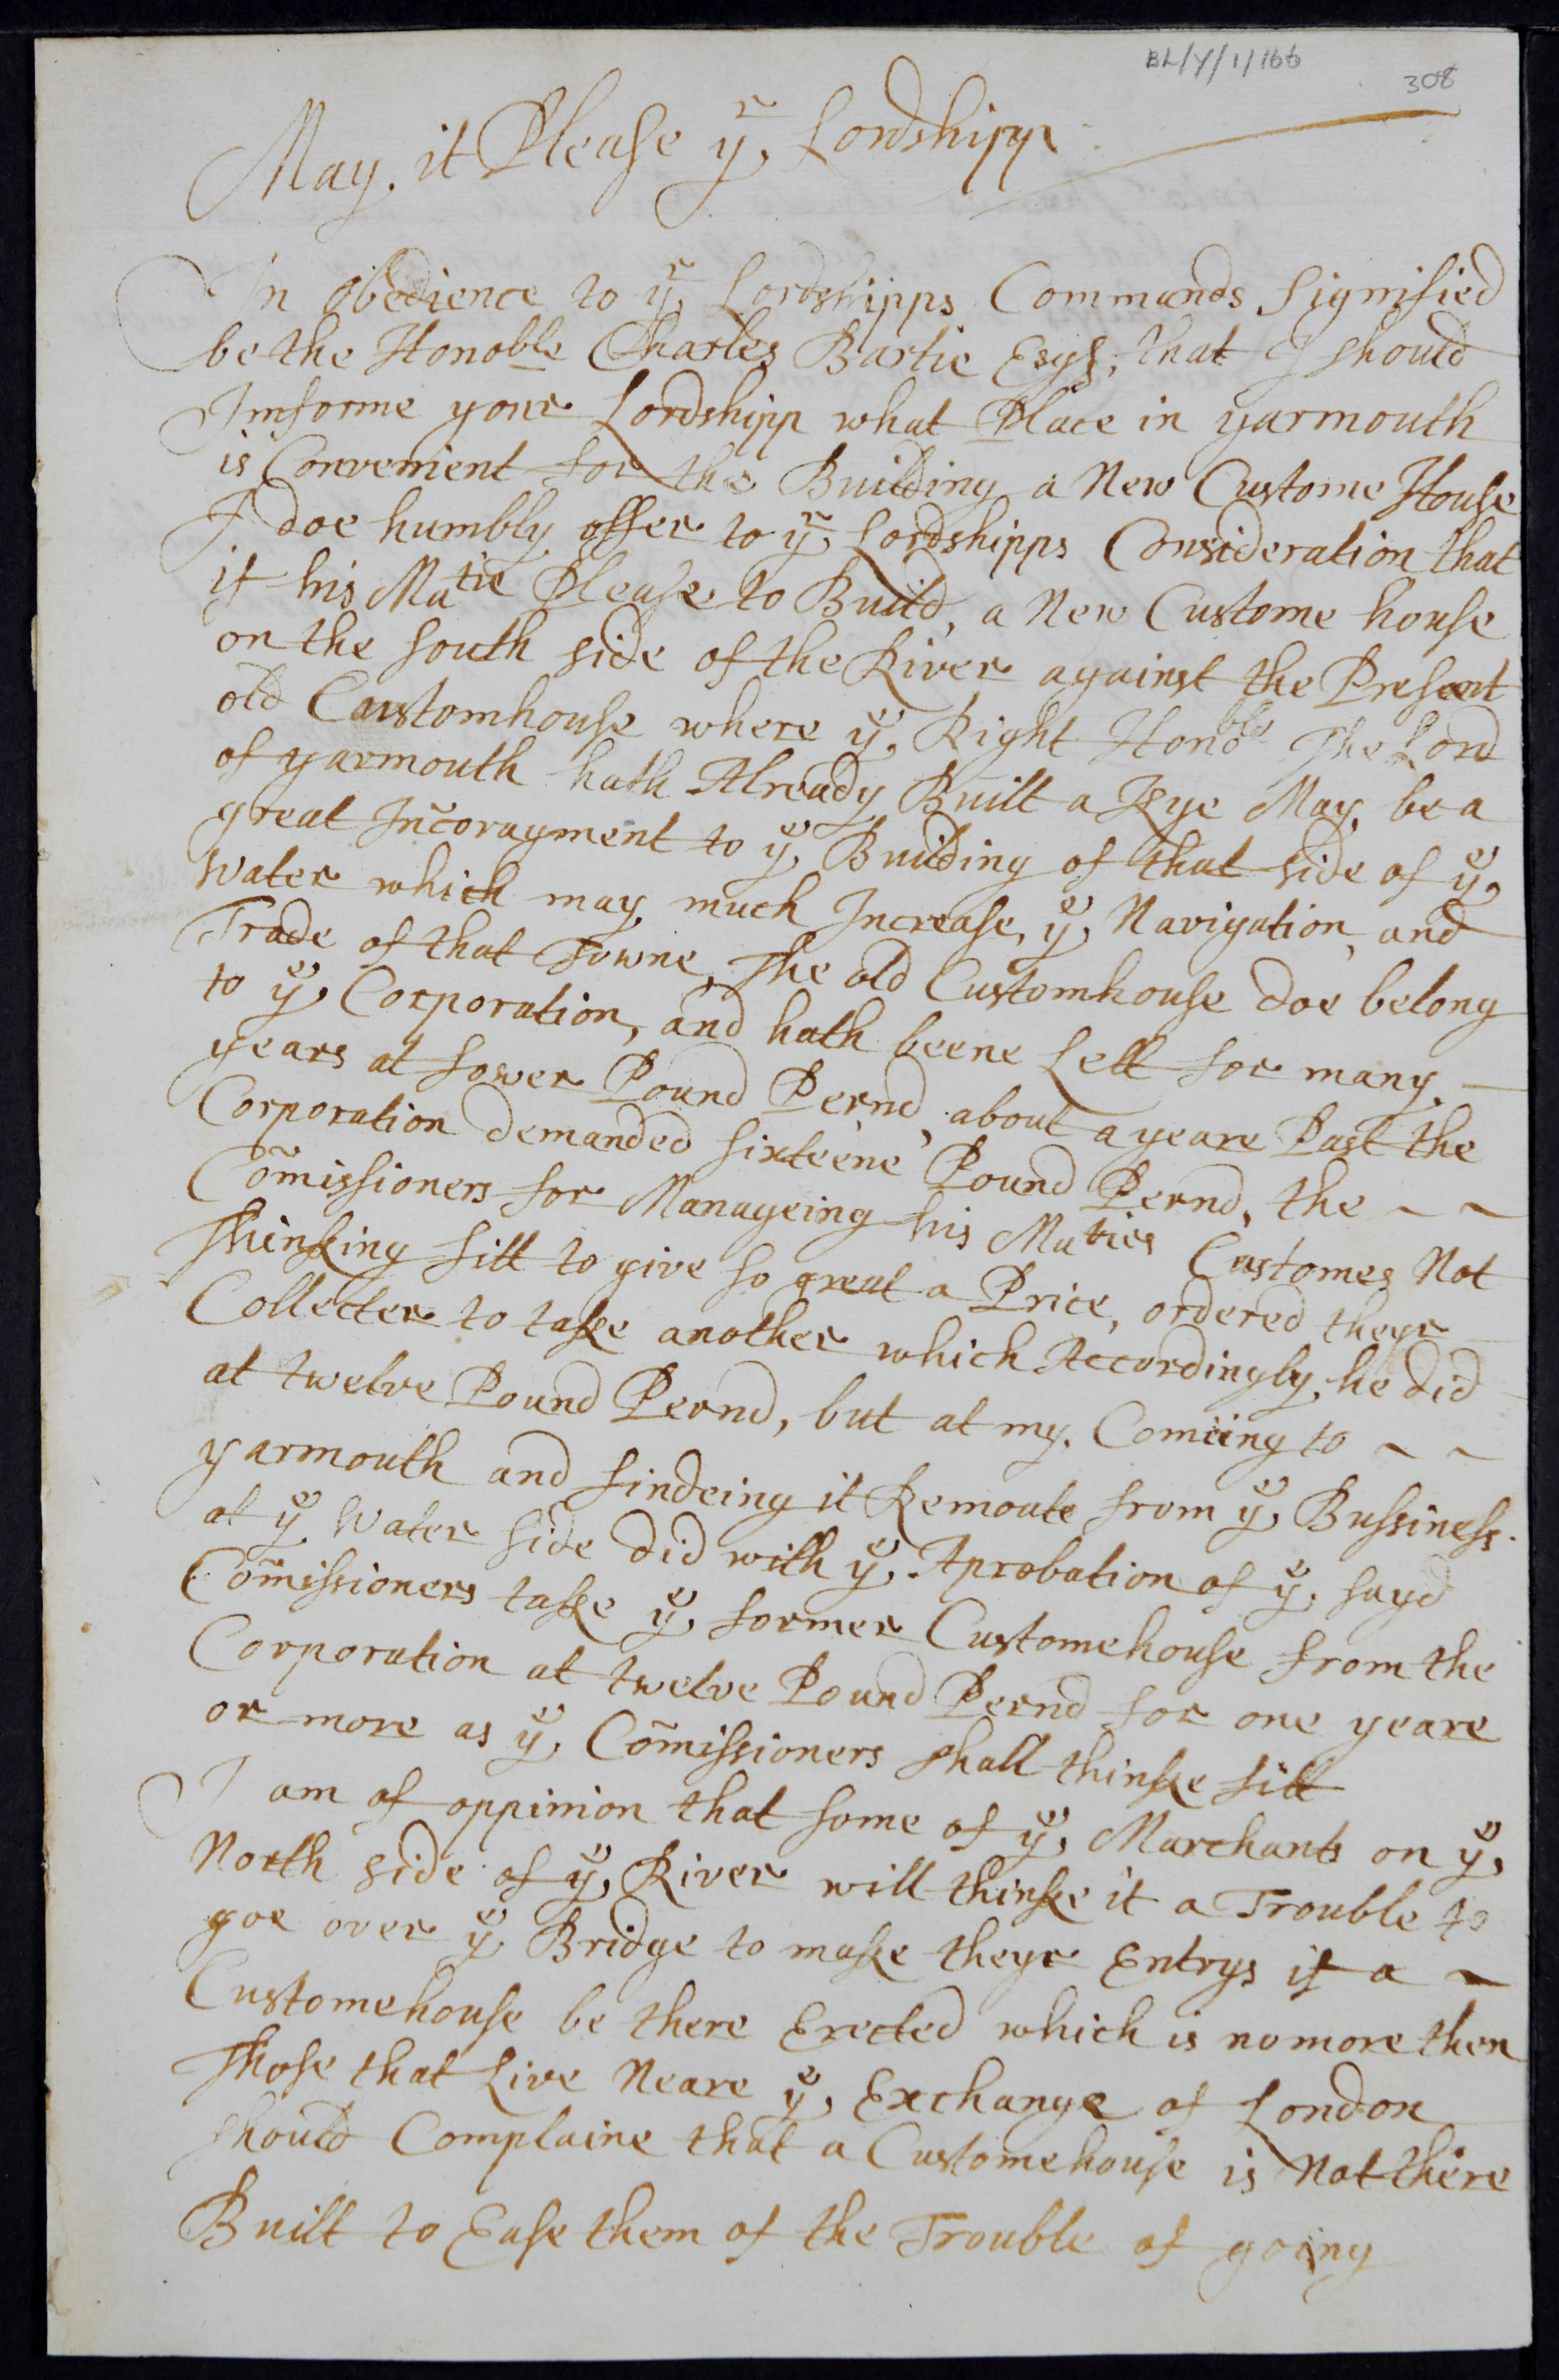 BL/Y/1/166
308
May it Please yr Lordshipp
In obedience to yr Lordshipps Commands signified
be the Honoble Charles Bartie Esqs, that I should
Imforme your Lordshipp what Place in yarmouth
is Convenient for the Building a New Custome House
I doe humbly offer to yr Lordshipps Consideration that
if his Matie Please to Build, a New Custome house
on the south side of the River against the Present
old Customhouse where ye Right Honoble The Lord
of yarmouth hath Already Built a Kye May be a
great Iñcoragment to ye Building of that side of ye
Water which may much Increase, ye Navigation, and
Trade of that Towne, The old Customhouse doe belong
to ye Corporation, and hath beene Lett for many
years at fower Pound Pernd, about a yeare Past the
Corporation demanded sixteene Pound Pernd, the
Com̃issioners for Manageing his Maties Customes Not
Thinking fitt to give so great a Price, ordered theyr
Collecter to take another which Accordingly he did
at twelve Pound Pernd, but at my Comeing to
yarmouth and findeing it Remoute from ye Bussiness
at ye Water side did with ye Aprobation of ye sayd
Com̃issioners take ye former Customehouse from the
Corporation at twelve Pound Pernd for one yeare
or more as ye Com̃issioners shall thinke fitt
I am of oppinion that some of ye Marchants on ye
North side of ye River will thinke it a Trouble to
goe over ye Bridge to make theyr Entrys if a
Customehouse be there Erected which is no more then
Those that Live Neare ye Exchange of London
should Complaine that a Customehouse is Not there
Built to Ease them of the Trouble of going